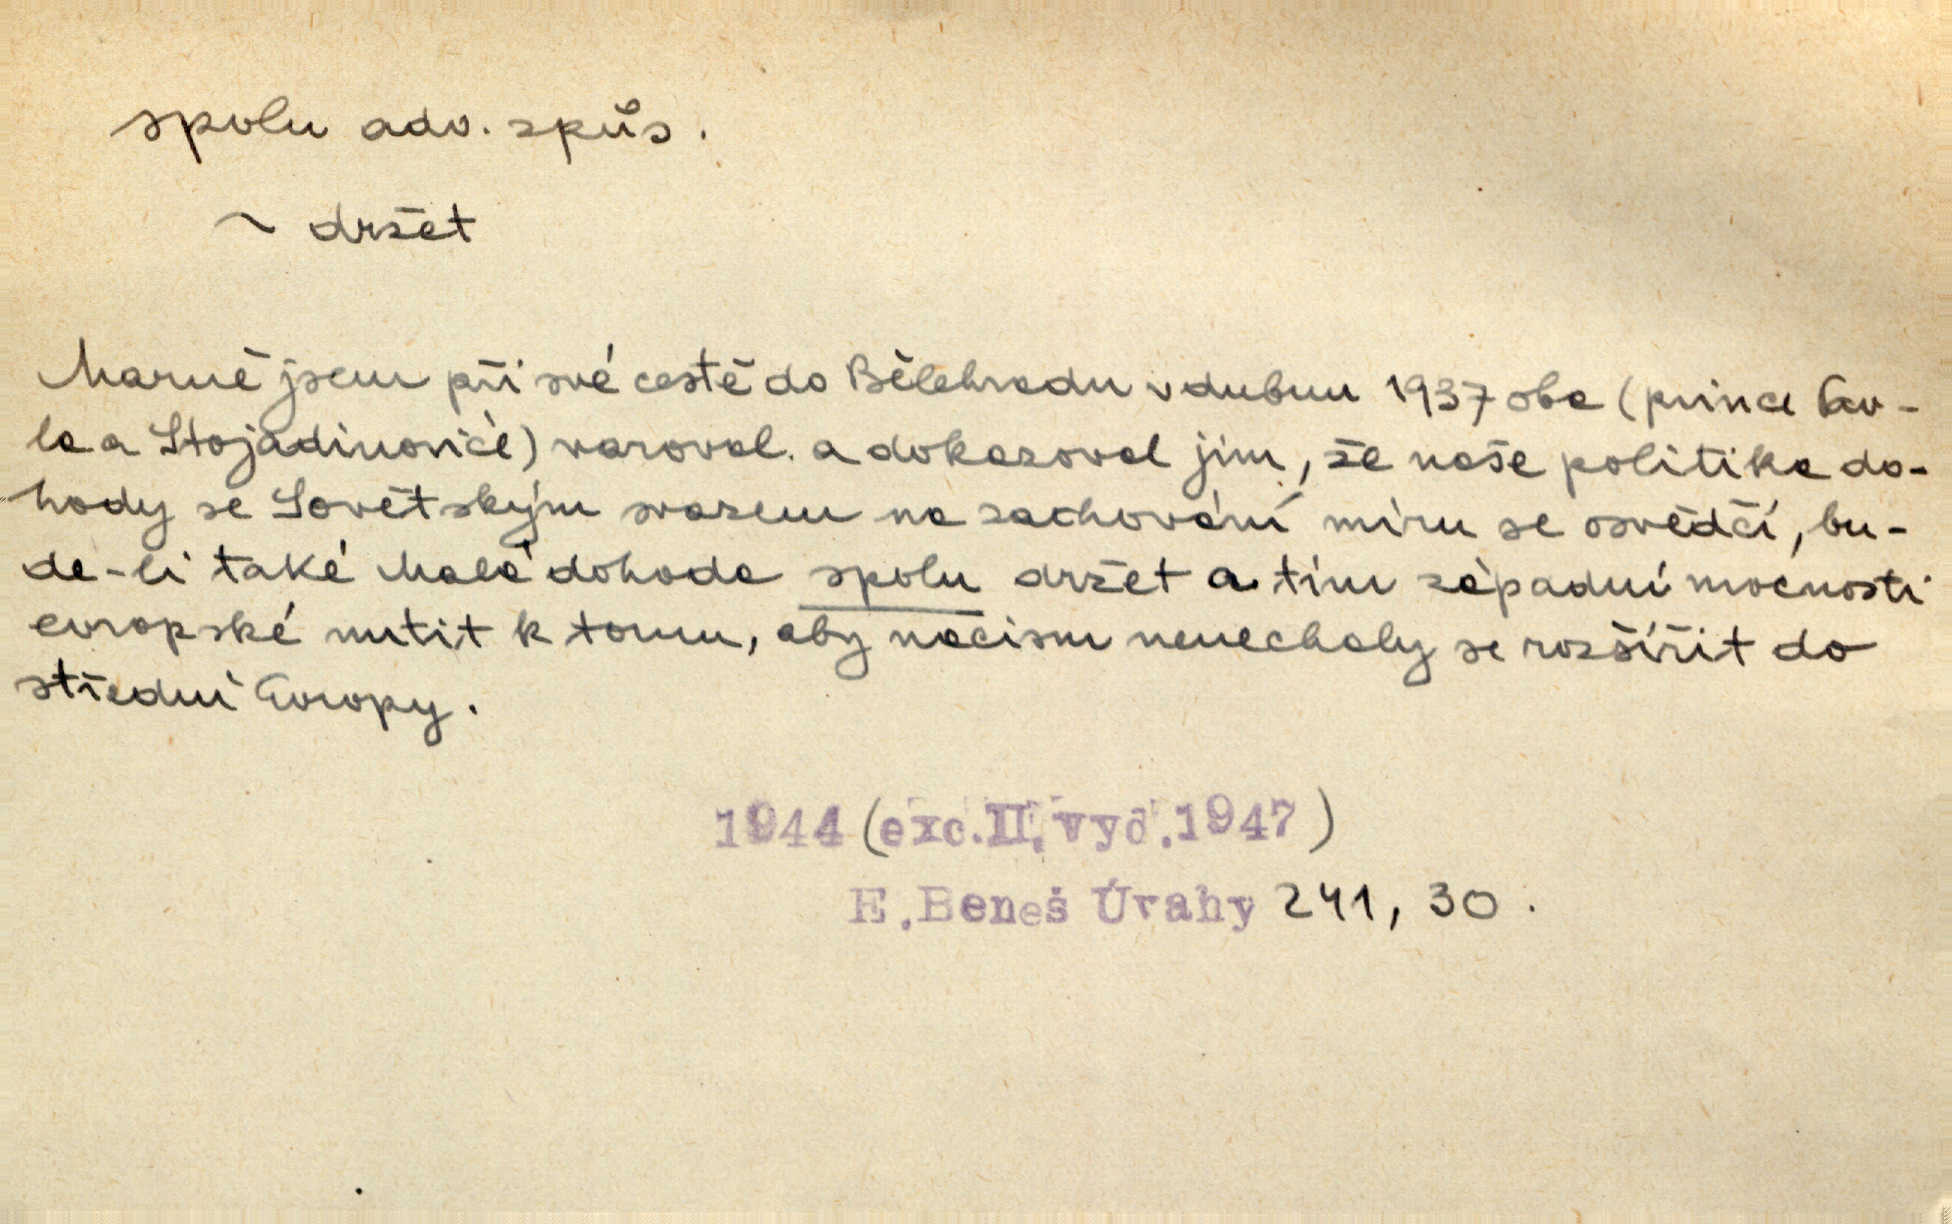 spolu adv. způs.
~ držet
Marně jsem při své cestě do Bělehradu v dubnu 1937 oba (prince Pav-
la a Stojadinoviče) varoval a dokazoval jim, že naše politika do-
hody se Sovětským svazem na zachování míru se osvědčí, bu-
de-li také Malá dohoda spolu držet a tím západní mocnosti
evropské nutit k tomu, aby nacism nenechaly se rozšířit do
střední Evropy.
1944 (exc. II. vyd. 1947)
E. Beneš Úvahy 241, 30.